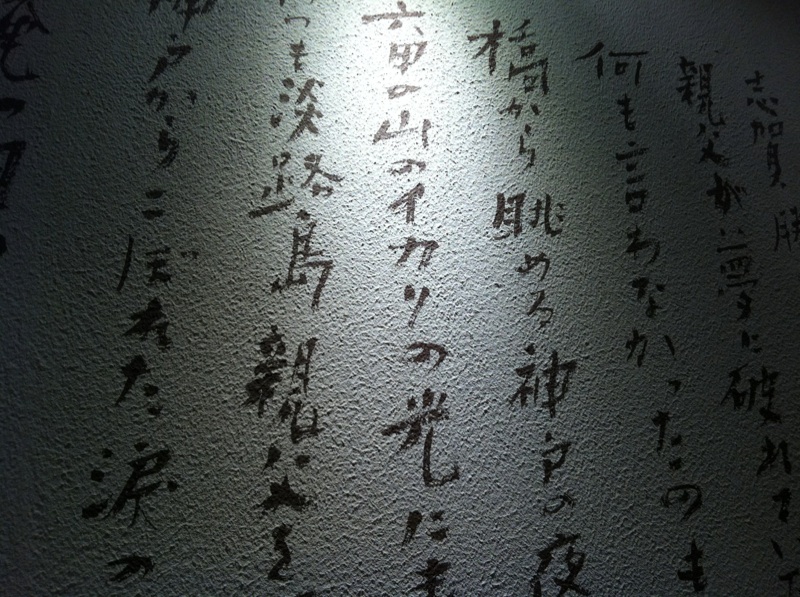 志賀 勝
親父が夢に破れて
何も言わなかったのも
橋から眺める神戸の夜
六甲の山のイカリの光にも
つも淡路島親
神戸からこぼれた涙か